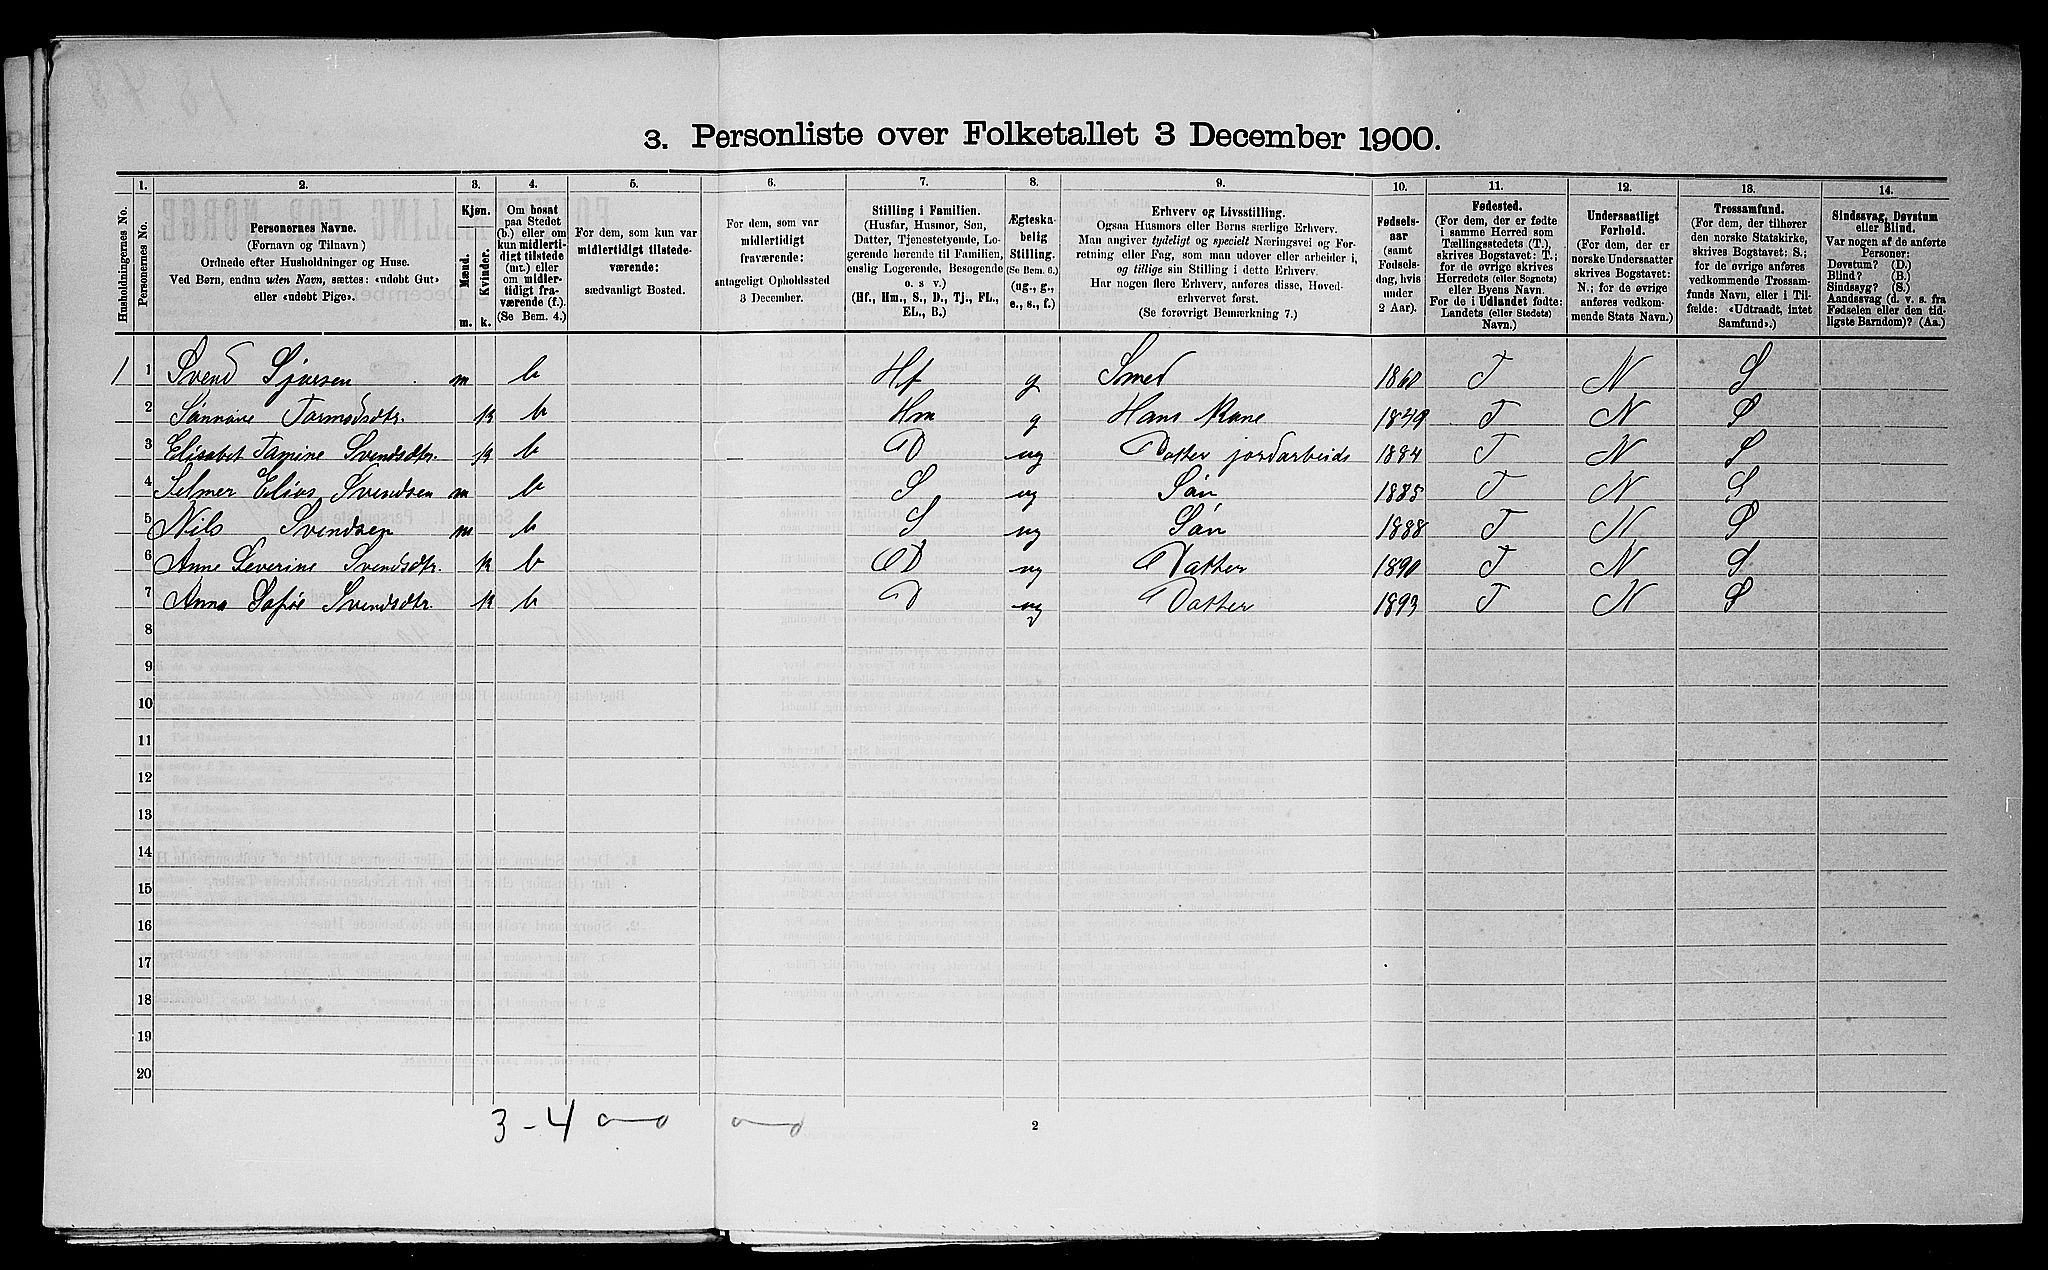 3. Personliste over Folketallet 3 December 1900.
1. 2. 3. 4. 5. 6. 7. 8. 9. 10. 11. 12. 13. 14.
Husholdningernes No.
Personernes No.
Personernes Navne.
(Fornavn og Tilnavn)
Ordnede efter Husholdninger og Huse.
Ved Børn, endnu uden Navn, sættes: «udøbt Gut»
eller «udøbt Pige».
Kjøn.
Mænd.
Kvinder.
m. k.
Om bosat
paa Stedet
(b.) eller om
kun midlerti-
digt tilstede
(mt.) eller
om midler-
tidigt fra-
værende (f.)
(Se Bem. 4.)
For dem, som kun var
midlertidigt tilstede-
værende:
sædvanligt Bosted.
For dem, som var
midlertidigt
fraværende:
antageligt Opholdssted
3 December.
Stilling i Familien.
(Husfar, Husmor, Søn,
Datter, Tjenestetyende, Lo-
gerende hørende til Familien,
enslig Logerende, Besøgende
o. s. v.)
(Hf., Hm., S., D., Tj., FL.,
EL., B.)
Ægteska-
belig
Stilling.
(Se Bem. 6.)
(ug., g.,
e., s., f.)
Erhverv og Livsstilling.
Ogsaa Husmors eller Børns særlige Erhverv.
Man angiver tydeligt og specielt Næringsvei og For-
retning eller Fag, som man udover eller arbeider i,
og tillige sin Stilling i dette Erhverv.
Har nogen flere Erhverv, anføres disse, Hoved-
erhvervet først.
(Se forøvrigt Bemærkning 7.)
Fødsels-
aar
(samt
Fødsels-
dag, hvis
under
2 Aar).
Fødested.
(For dem, der er fødte
i samme Herred som
Tællingsstedets (T.),
skrives Bogstavet: T.;
for de øvrige skrives
Herredets (eller Sognets)
eller Byens Navn.
For de i Udlandet fødte:
Landets (eller Stedets)
Navn.)
Undersaatligt
Forhold.
(For dem, der er
norske Undersaatter
skrives Bogstavet:
N.; for de øvrige
anføres vedkom-
mende Stats Navn.)
Trossamfund.
(For dem, der tilhører
den norske Statskirke,
skrives Bogstavet: S.;
for de øvrige anføres
vedkommende Trossam-
funds Navn, eller i Til-
fælde: «Udtraadt, intet
Samfund».)
Sindssvag, Døvstum
eller Blind.
Var nogen af de anførte
Personer:
Døvstum? (D.)
Blind? (B.)
Sindssyg? (S.)
Aandssvag (d. v. s. fra
Fødselen eller den tid-
ligste Barndom)? (Aa.)
1 1 Svend Sjursen m b Hf g Smed 1860 T N S
2 Sønnøve Tormodsdtr. k b Hm g Hans Kone 1849 T N S
3 Elisabet Tamine Svendsdtr. k b D ug Datter jordarbeids 1884 T N S
4 Selmer Elias Svendsen m b S ug Søn 1885 T N S
5 Nils Svendsen m b S ug Søn 1888 T N S
6 Anne Severine Svendsdtr. k b D ug Datter 1890 T N S
7 Anna Sofie Svendsdtr. k b D ug Datter 1893 T N S
8
9
10
11
12
13
14
15
16
17
18
19
20
3-4
2